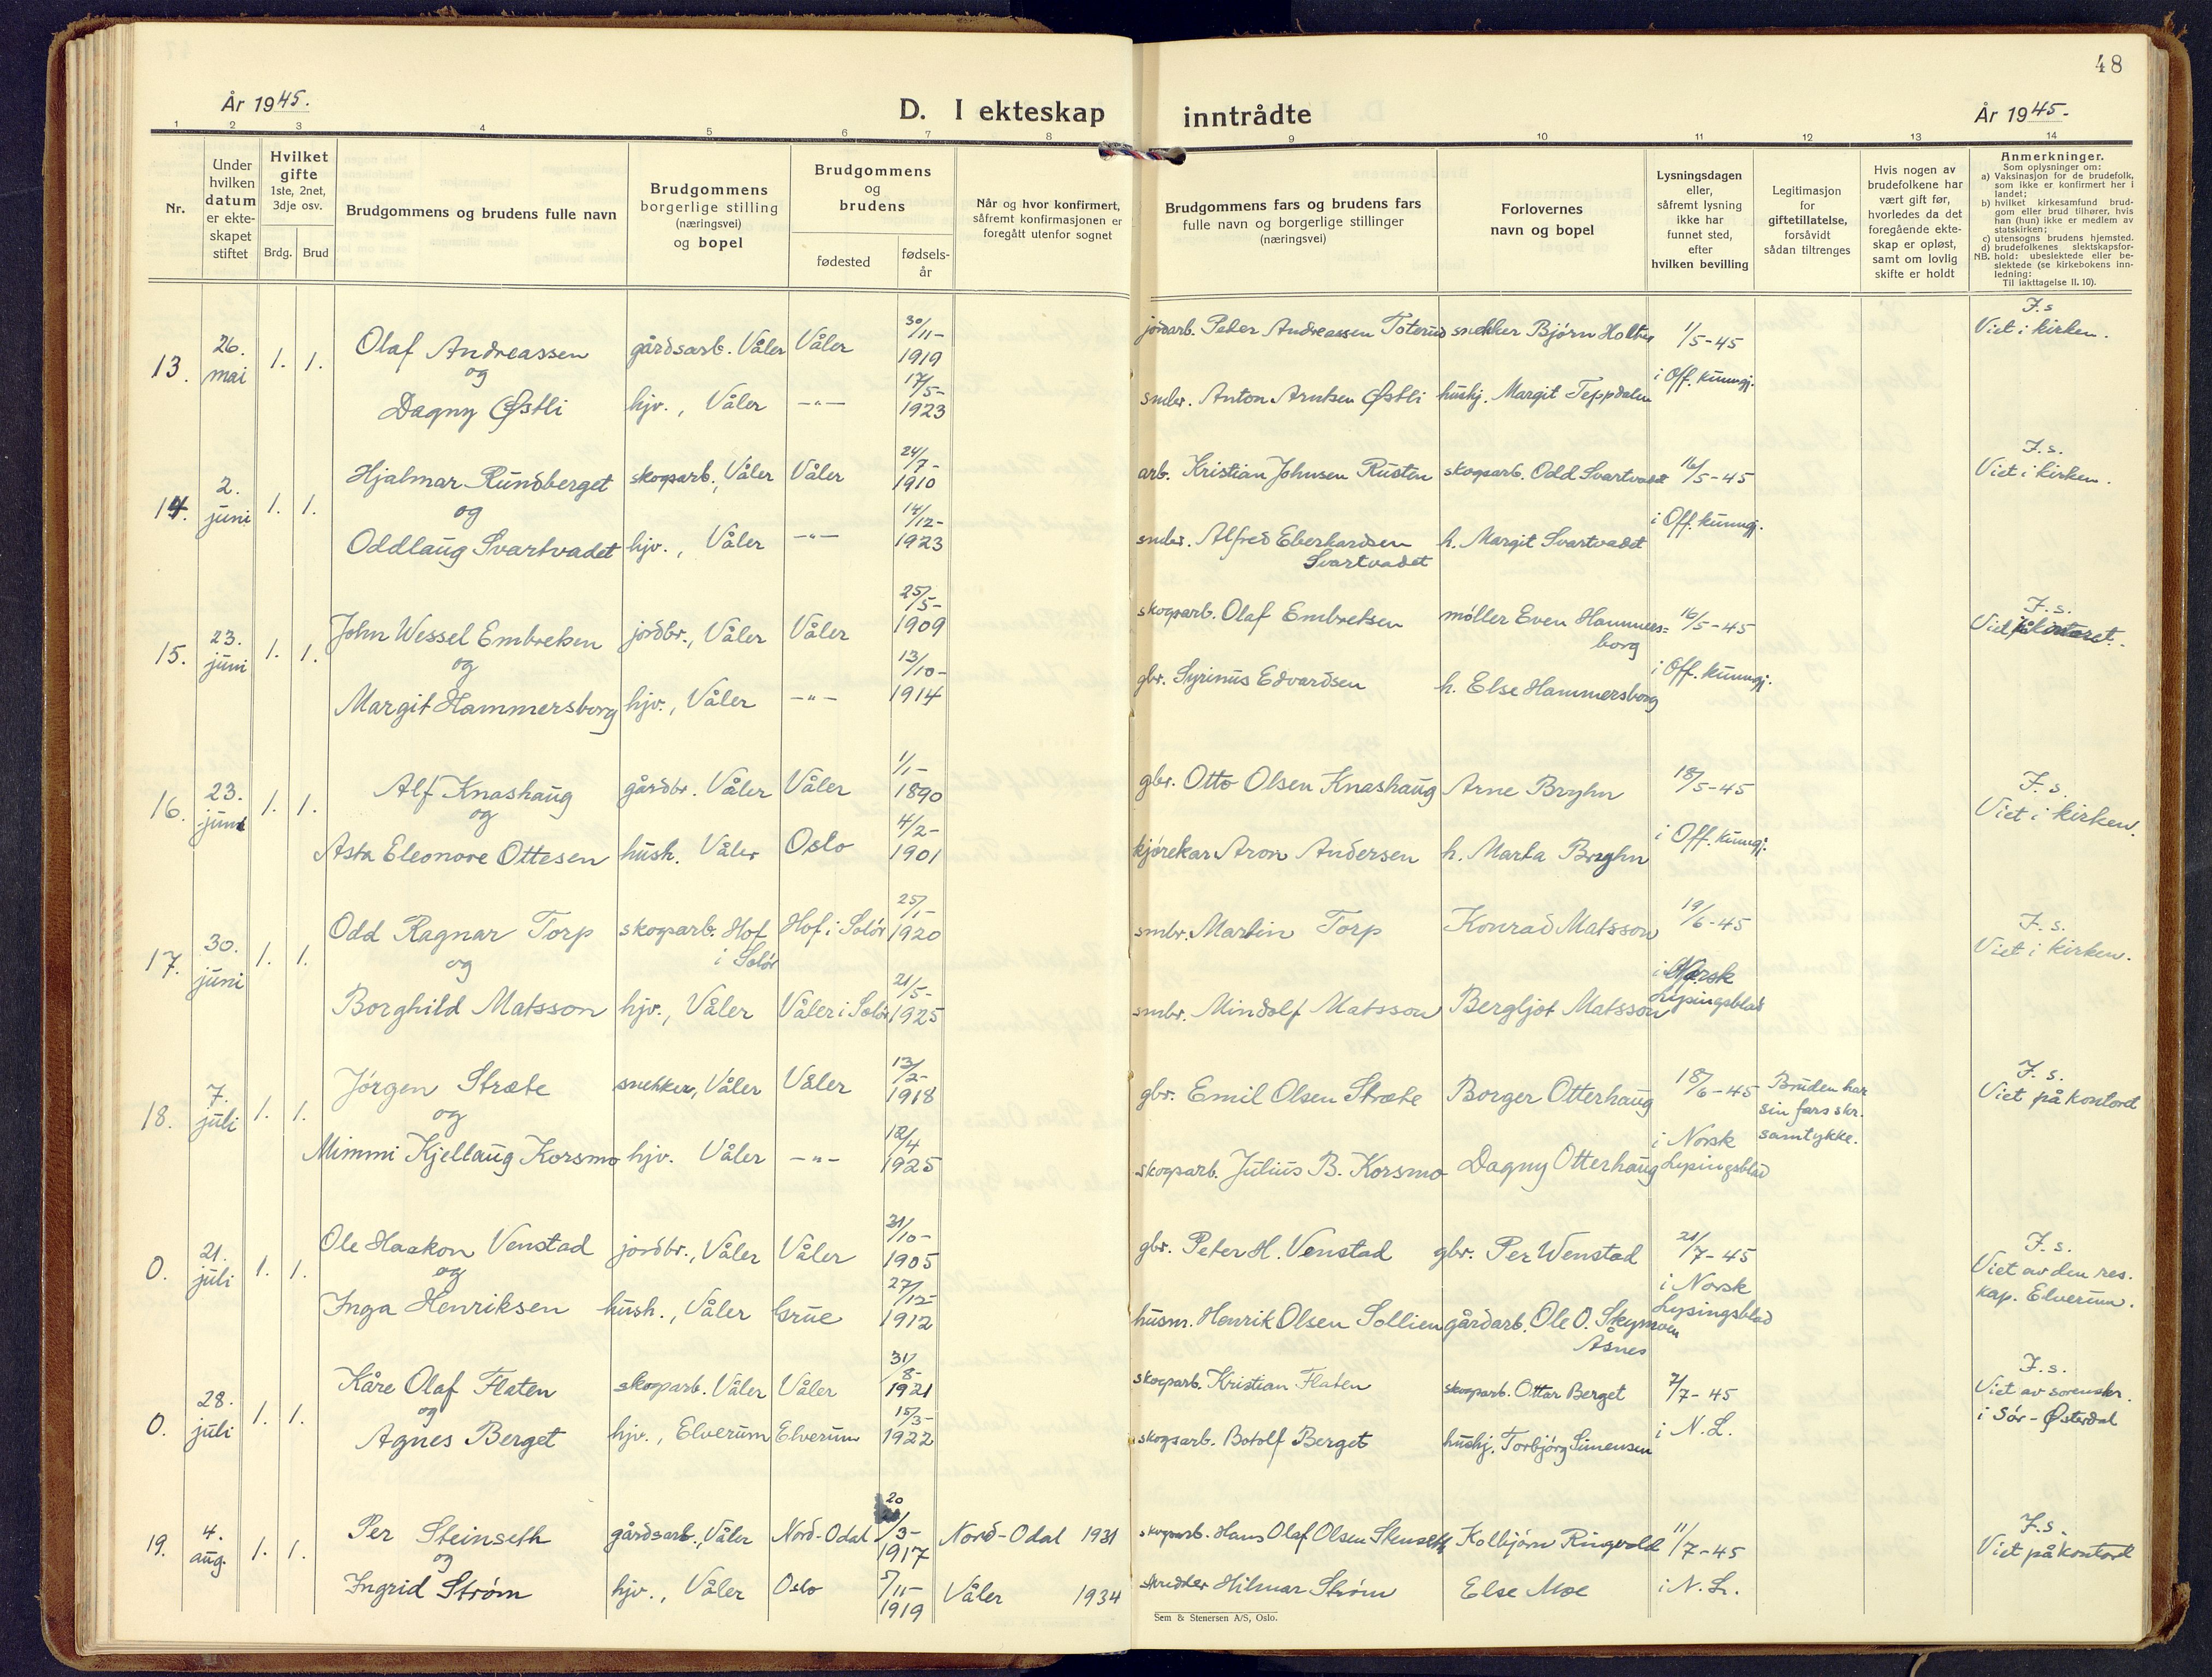 48
År 1945.
D. I ekteskap inntrådte
År 1945.
1 2 3 4 5 6 7 8 9 10 11 12 13 14
Nr.
Under
hvilken
datum
er ekte-
skapet
stiftet
Hvilket
gifte
1ste, 2net,
3dje osv.
Brdg. Brud
Brudgommens og brudens fulle navn
Brudgommens
borgerlige stilling
(næringsvei)
og bopel
Brudgommens
og
brudens
fødested
fødsels-
år
Når og hvor konfirmert,
såfremt konfirmasjonen er
foregått utenfor sognet
Brudgommens fars og brudens fars
fulle navn og borgerlige stillinger
(næringsvei)
Forlovernes
navn og bopel
Lysningsdagen
eller,
såfremt lysning
ikke har
funnet sted,
efter
hvilken bevilling
Legitimasjon
for
giftetillatelse,
forsåvidt
sådan tiltrenges
Hvis nogen av
brudefolkene har
vært gift før,
hvorledes da det
foregående ekte-
skap er opløst,
samt om lovlig
skifte er holdt
Anmerkninger.
Som oplysninger om:
a) Vaksinasjon for de brudefolk,
som ikke er konfirmert her i
landet;
b) hvilket kirkesamfund brud-
gom eller brud tilhører, hvis
han (hun) ikke er medlem av
statskirken;
c) utensogns brudens hjemsted.
d) brudefolkenes slektskapsfor-
NB. hold: ubeslektede eller be-
slektede (se kirkebokens inn-
ledning:
Til iakttagelse II. 10).
13. 26. mai 1. 1. Olaf Andreassen gårdsarb. Våler Våler 30/11-1919 jordarb. Peter Andreassen Toterud snekker Bjørn Holter 1/5-45 F.s Viet i kirken.
og
Dagny Østli hjv., Våler -"- 17/5-1923 småbr. Anton Arntsen Østli hushj. Margit Teppdalen i Off. kunngj.
14. 2. juni 1. 1. Hjalmar Rundberget skogsarb., Våler Våler 24/7-1910 arb. Kristian Johnsen Rusten skogsarb. Odd Svartvadet 16/5-45 F.s. Viet i kirken.
og
Oddlaug Svartvadet hjv., Våler -"- 14/12-1923 småbr. Alfred Eberhardsen Svartvadet h. Margit Svartvadet i Off. kunngj.
15. 23. juni 1. 1. John Wessel Embretsen jordbr., Våler Våler 25/5-1909 skogsarb. Olaf Embretsen møller Even Hammers=borg 16/5-45 F.s. Viet
og
Margit Hammersborg hjv., Våler -"- 13/10-1914 gbr. Syrinus Edvardsen h. Else Hammersborg i Off. kunngj.
16. 23. juni 1. 1. Alf Knashaug gårdbr. Våler Våler 1/1-1890 gbr. Otto Olsen Knashaug Arne Bryhn 18/5-45 F.s. Viet i kirken.
og
Asta Eleonore Ottesen hush. Våler Oslo 4/2-1901 kjørekar Aron Andersen h. Marta Bryhn i Off. kunngj.
17. 30. juni 1. 1. Odd Ragnar Torp skogsarb. Hof i Solør Hof i Solør 25/1-1920 smbr. Martin Torp Konrad Matsson 19/6-45 F.s. Viet i kirken.
og
Borghild Matsson hjv., Våler Våler i Solør 21/5-1925 smbr. Mindolf Matsson Bergljot Matsson i Norsk Lysingsblad
18. 7. juli 1. 1. Jørgen Stræte snekker, Våler Våler 13/2-1918 gbr. Emil Olsen Stræte Borger Otterhaug 18/6-45 Bruden har sin fars skr. samtykke. F.s. Viet på kontoret
og
Mimmi Kjellaug Korsmo hjv. Våler -"- 12/4 1925 skogsarb. Julius B. Korsmo Dagny Otterhaug i Norsk Lysingsblad
0. 21. juli 1. 1. Ole Haakon Venstad jordbr., Våler Våler 31/10-1905 gbr. Peter H. Venstad gbr. Per Wenstad 21/7-45 F.s. Viet av den res. kap. Elverum.
og
Inga Henriksen hush., Våler Grue 27/12-1912 husm. Henrik Olsen Sollien gårdarb. Ole O. Skymoen Åsnes i Norsk Lysingsblad
0. 28. juli 1. 1. Kåre Olaf Flaten skogsarb. Våler Våler 31/8-1921 skogsarb. Kristian Flaten skogsarb. Ottar Berget 7/7-45 F.s. Viet av sorenskr. i Sør-Østerdal
og
Agnes Berget hjv., Elverum Elverum 15/3-1922 skogsarb. Botolf Berget hushj. Torbjørg Simensen i N.L.
19. 4. aug. 1. 1. Per Steinseth gårdsarb., Våler Nord-Odal 20/3-1917 Nord-Odal 1931 skogsarb. Hans Olaf Olsen Stenseth Kolbjørn Ringvold 11/7-45 F.s. Viet på kontoret
og
Ingrid Strøm hjv., Våler Oslo 5/11-1919 Våler 1934 skredder Hilmar Strøm Else Moe i N.L.
Sem & Stenersen A/S, Oslo.